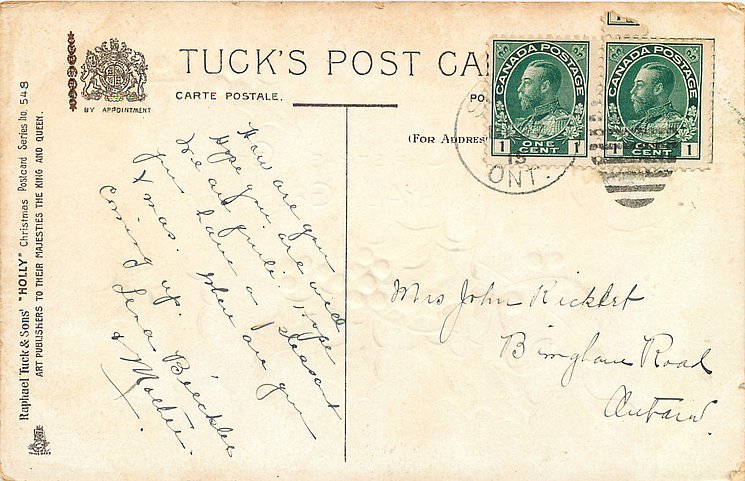 TUCK'S POST CA
CARTE POSTALE.
BY APPOINTMENT
PO
(FOR ADDRES
CANADA POSTAGE
1 ONE CENT 1
CANADA POSTAGE
1 ONE CENT 1
13
ONT.
Raphael Tuck & Sons' "HOLLY" Christmas Postcard Series No. 548
ART PUBLISHERS TO THEIR MAJESTIES THE KING AND QUEEN.
How are you
Hope you are well
We are quite. Hope
you have a pleasant
Xmas. When are you
coming up.
Lena
& Mother.
X
Mrs John
Road
Ontario